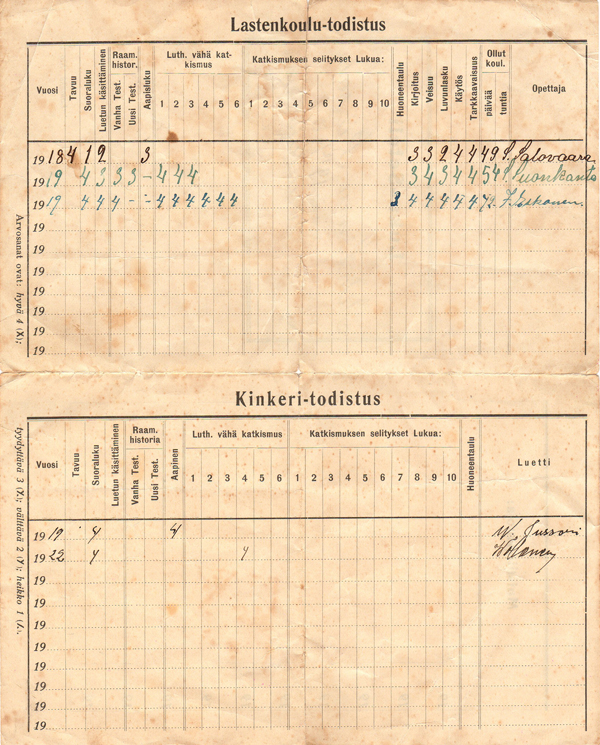 Lastenkoulu-todistus
Vuosi Tavuu Suoraluku Luetun käsittäminen Raam. histor. Vanha Test. Uusi Test. Aapisluku Luth. vähä kat-kismus 1 2 3 4 5 6 Katkismuksen selitykset Lukua: 1 2 3 4 5 6 7 8 9 10 Huoneentaulu Kirjoitus Veisuu Luvunlasku Käytös Tarkkaavaisuus Ollut koul. päivää tuntia Opettaja
1918 4 1 2 3 3 3 2 4 4 49 S. Salovaara
1919 4 3 3 3 - 4 4 4 3 4 3 4 4 54 S. Suonkanto
1919 4 4 4 - - 4 4 4 4 4 4 3 4 4 4 4 4 42
19
19
19
19
19
19
Arvosanat ovat: hyvä 4 (X);
Kinkeri-todistus
Vuosi Tavuu Suoraluku Luetun käsittäminen Raam. historia Vanha Test. Uusi Test. Aapinen Luth. vähä katkismus 1 2 3 4 5 6 Katkismuksen selitykset Lukua: 1 2 3 4 5 6 7 8 9 10 Huoneentaulu Luetti
1919 4 4 W. Jussoni
1922 4 4
19
19
19
19
19
19
19
tyydyttävä 3 (X); välttävä 2 (Y); heikko 1 (/).